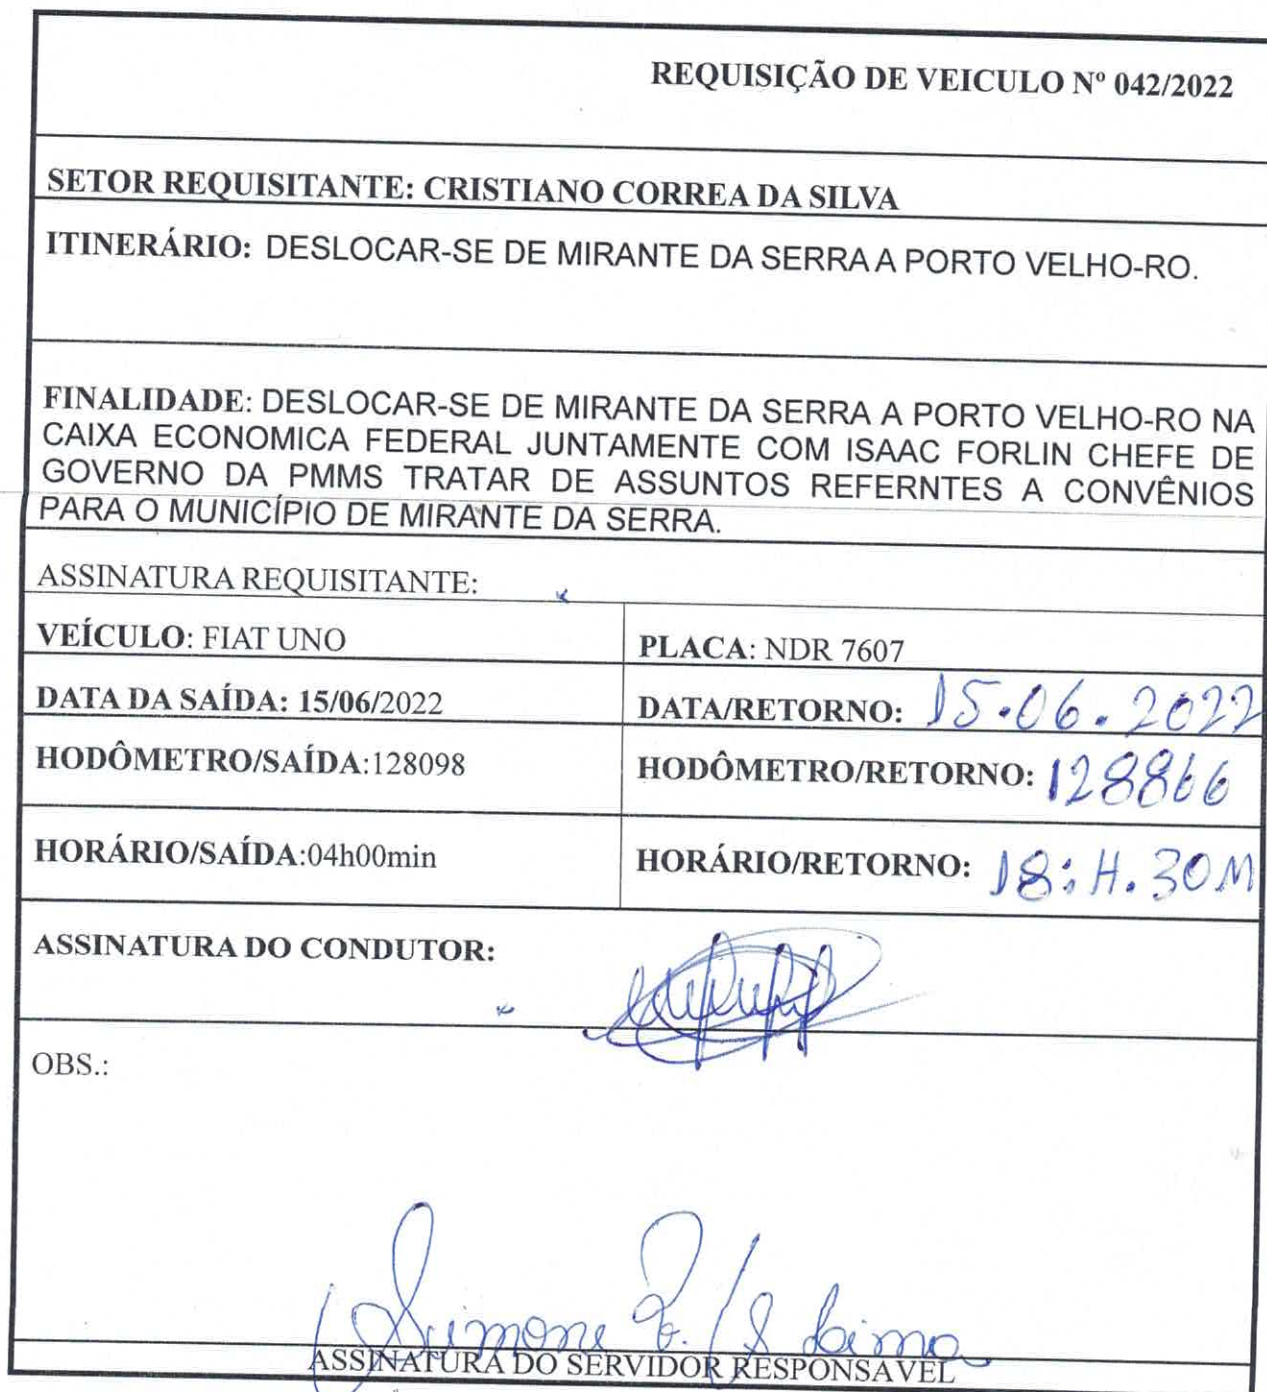 REQUISIÇÃO DE VEICULO Nº 042/2022
SETOR REQUISITANTE: CRISTIANO CORREA DA SILVA
ITINERÁRIO: DESLOCAR-SE DE MIRANTE DA SERRA A PORTO VELHO-RO.
FINALIDADE: DESLOCAR-SE DE MIRANTE DA SERRA A PORTO VELHO-RO NA
CAIXA ECONOMICA FEDERAL JUNTAMENTE COM ISAAC FORLIN CHEFE DE
GOVERNO DA PMMS TRATAR DE ASSUNTOS REFERNTES A CONVÊNIOS
PARA O MUNICÍPIO DE MIRANTE DA SERRA.
ASSINATURA REQUISITANTE:
VEÍCULO: FIAT UNO
PLACA: NDR 7607
DATA DA SAÍDA: 15/06/2022
DATA/RETORNO: 15.06.2022
HODÔMETRO/SAÍDA:128098
HODÔMETRO/RETORNO: 128866
HORÁRIO/SAÍDA:04h00min
HORÁRIO/RETORNO: 18:H.30M
ASSINATURA DO CONDUTOR:
OBS.:
Simone Lima
ASSINATURA DO SERVIDOR RESPONSAVEL